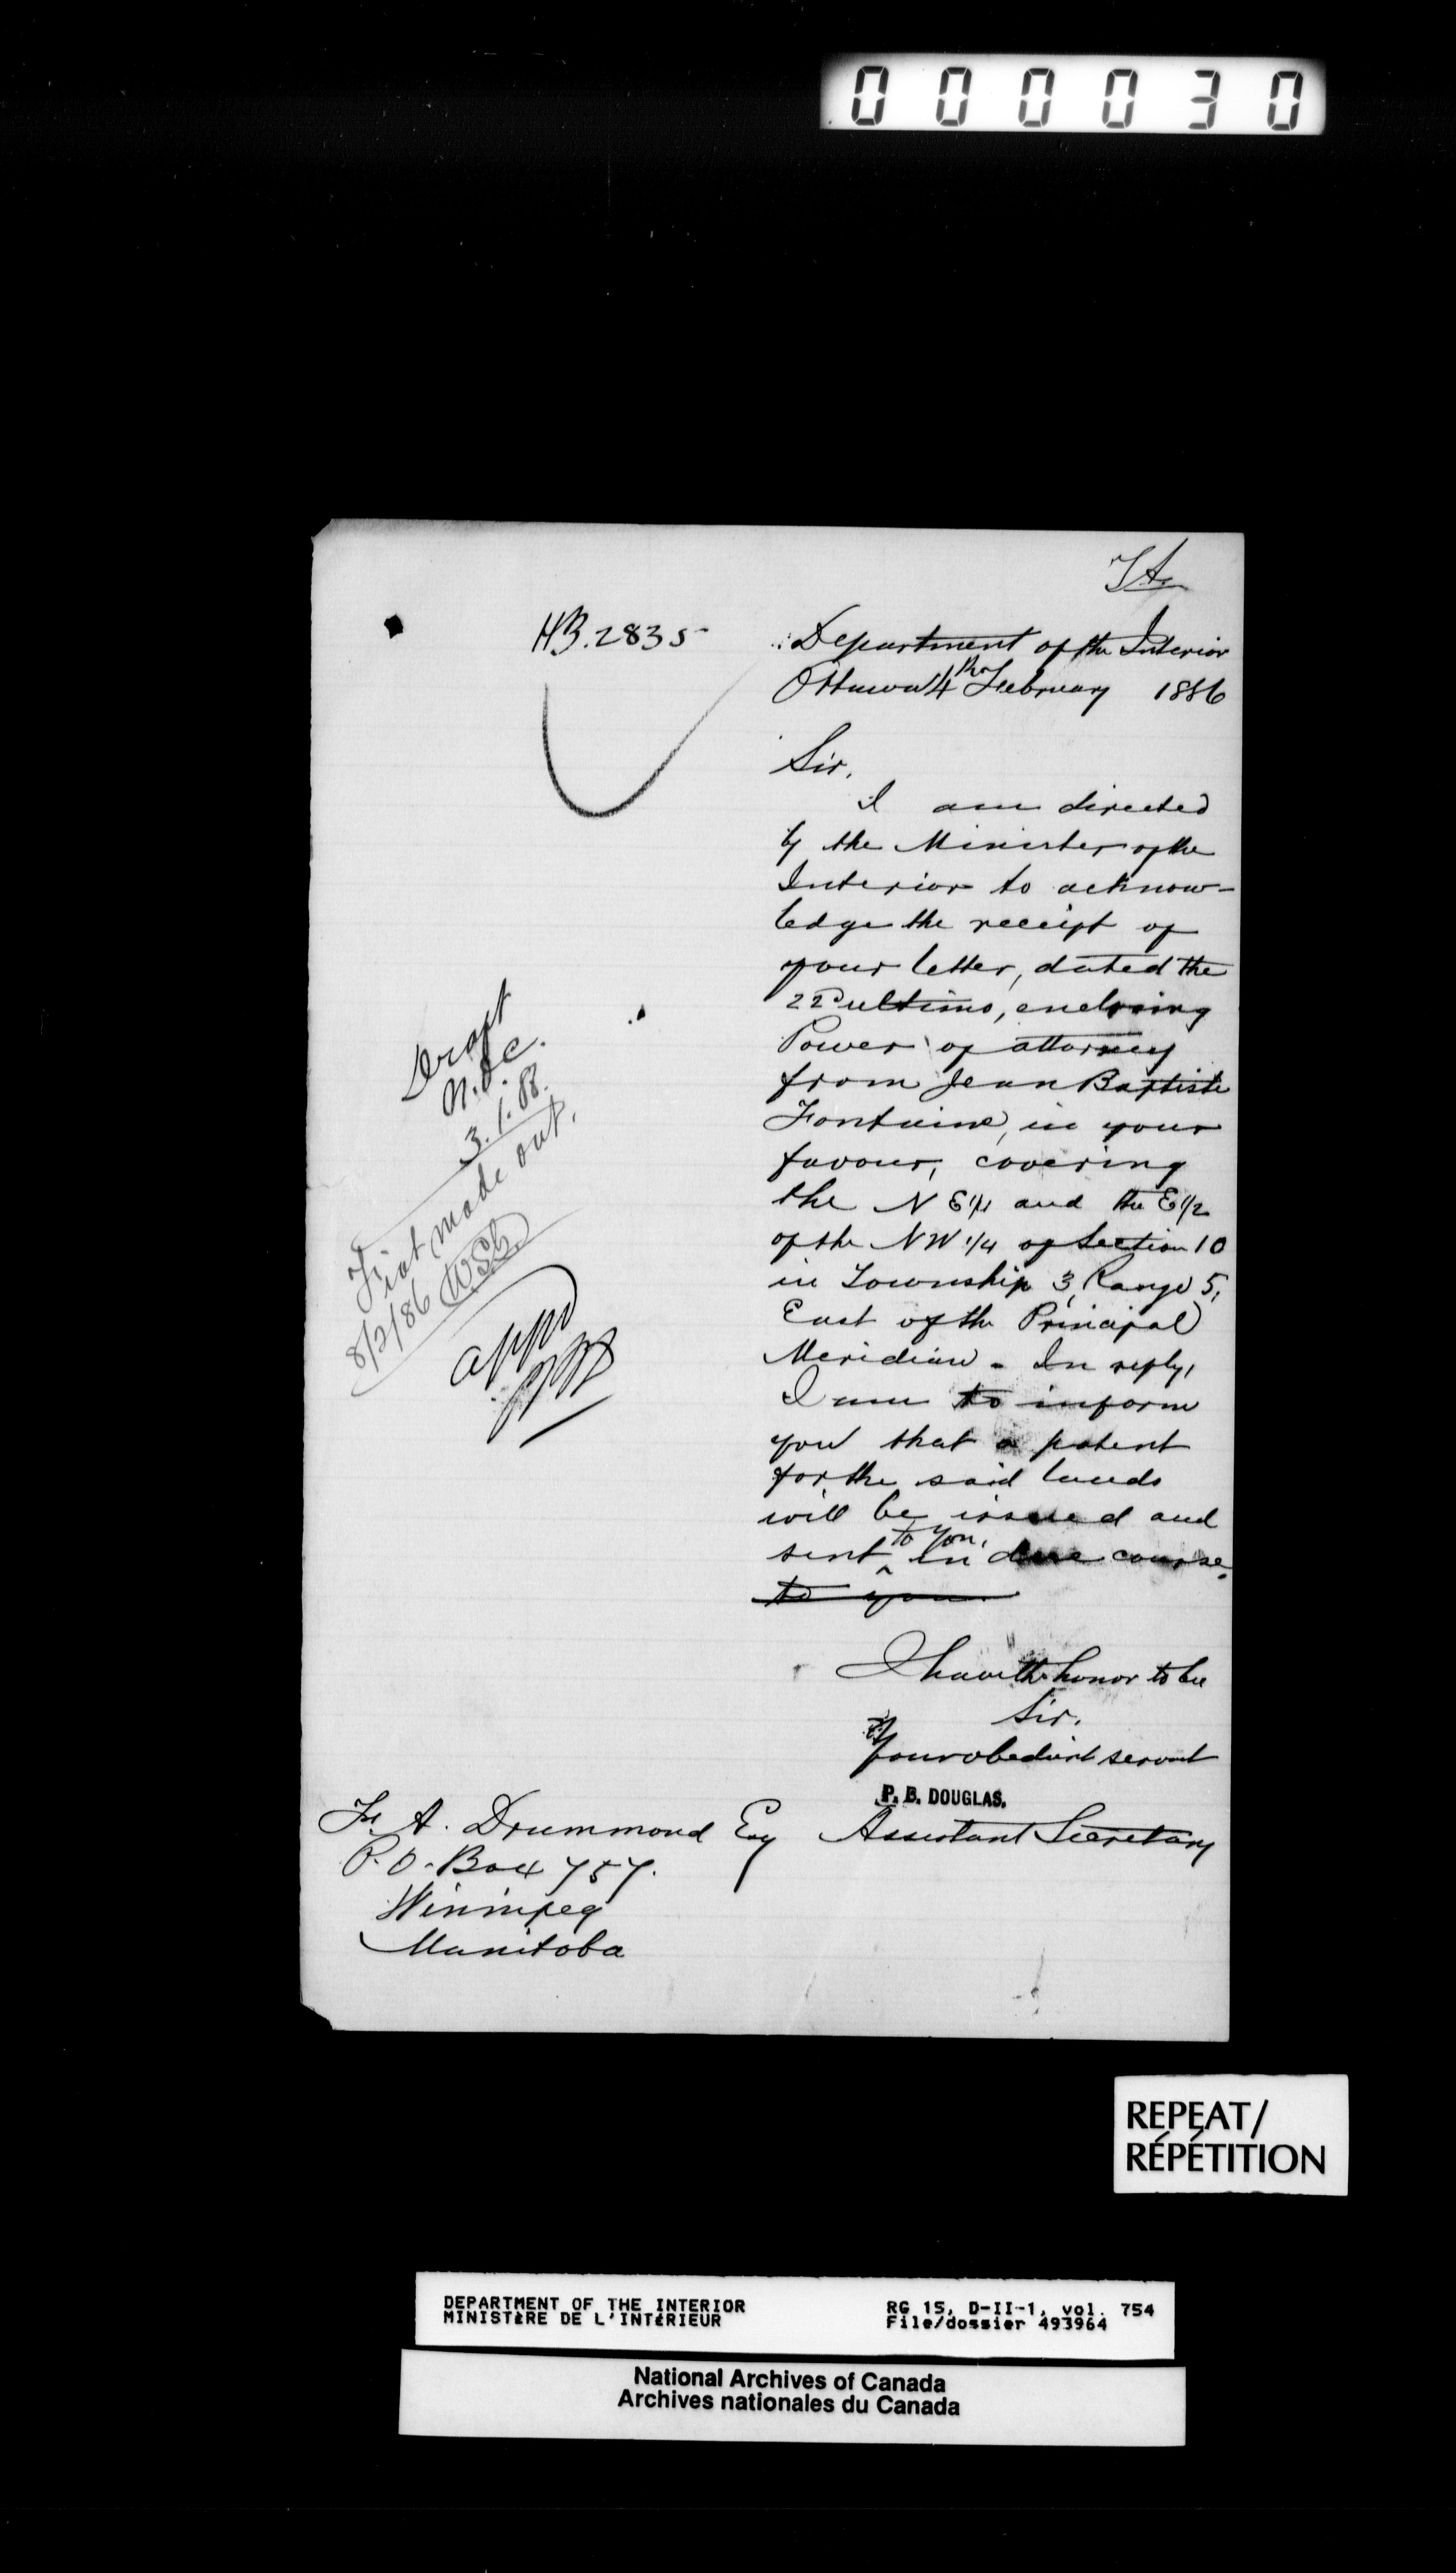 000030
HB. 2835
Department of the Interior
Ottawa 4th February 1886
Sir,
I am directed
by the Minister of the
Interior to acknow-
ledge the receipt of
your letter, dated the
22d ultimo, enclosing
Power of attorney
from Jean Baptiste
Fontaine, in your
favour, covering
the N E 1/4 and the E 1/2
of the NW 1/4 of Section 10
in Township 3, Range 5,
East of the Principal
Meridian - In reply,
I am to inform
you that a patent
for the said lands
will be issued and
sent to you, in due course.
to you
I have the honor to be
Sir,
Your obedient servant
P. B. DOUGLAS.
Assistant Secretary
A. Drummond Esq
P.O. Box 757.
Winnipeg
Manitoba
Draft
N.O.C.
Fiat made out.
8/2/86
appd
REPEAT/
RÉPÉTITION
DEPARTMENT OF THE INTERIOR RG 15, D-II-1, vol. 754
MINISTÈRE DE L'INTÉRIEUR File/dossier 493964
National Archives of Canada
Archives nationales du Canada